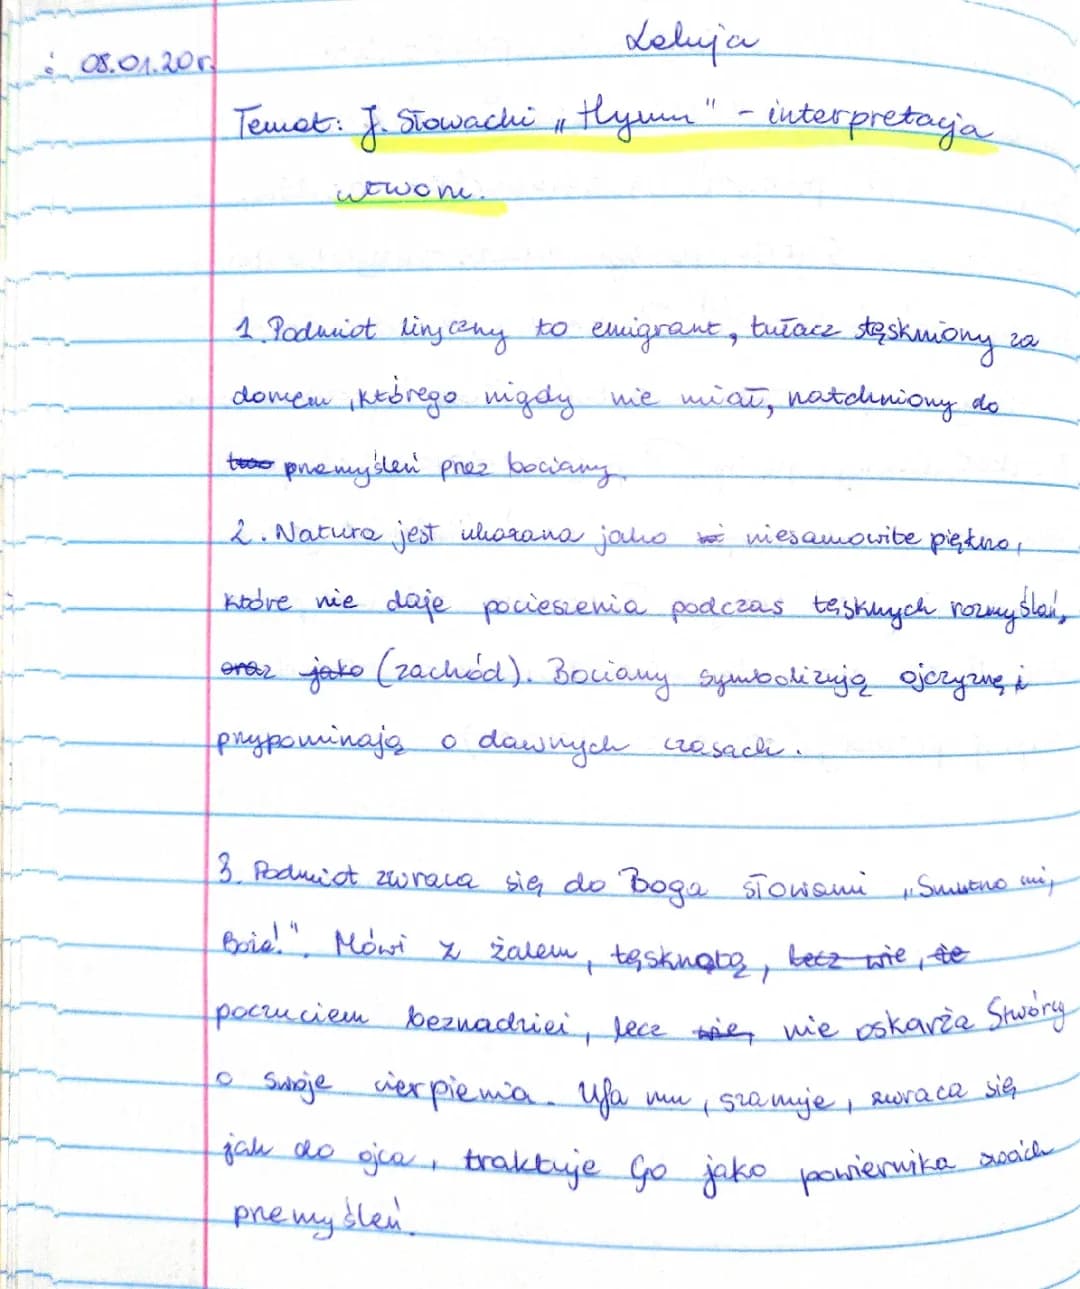 Lekcja
08.01.20r.
Temat: J. Słowacki „Hymn" - interpretacja
utworu.
1. Podmiot liryczny to emigrant, tułacz stęskniony za
domem, którego nigdy nie miał, natchniony do
przemyśleń przez bociany.
2. Natura jest ukazana jako niesamowite piękno,
które nie daje pocieszenia podczas tęsknych rozmyślań,
oraz jako (zachód). Bociany symbolizują ojczyznę i
przypominają o dawnych czasach.
3. Podmiot zwraca się do Boga słowami „Smutno mi,
Boże!". Mówi z żalem, tęsknotą, lecz wie, że
poczuciem beznadziei, lecz wie, nie oskarża Stwórcy
o swoje cierpienia. Ufa mu, szanuje, zwraca się
jak do ojca, traktuje Go jako powiernika swoich
przemyśleń.